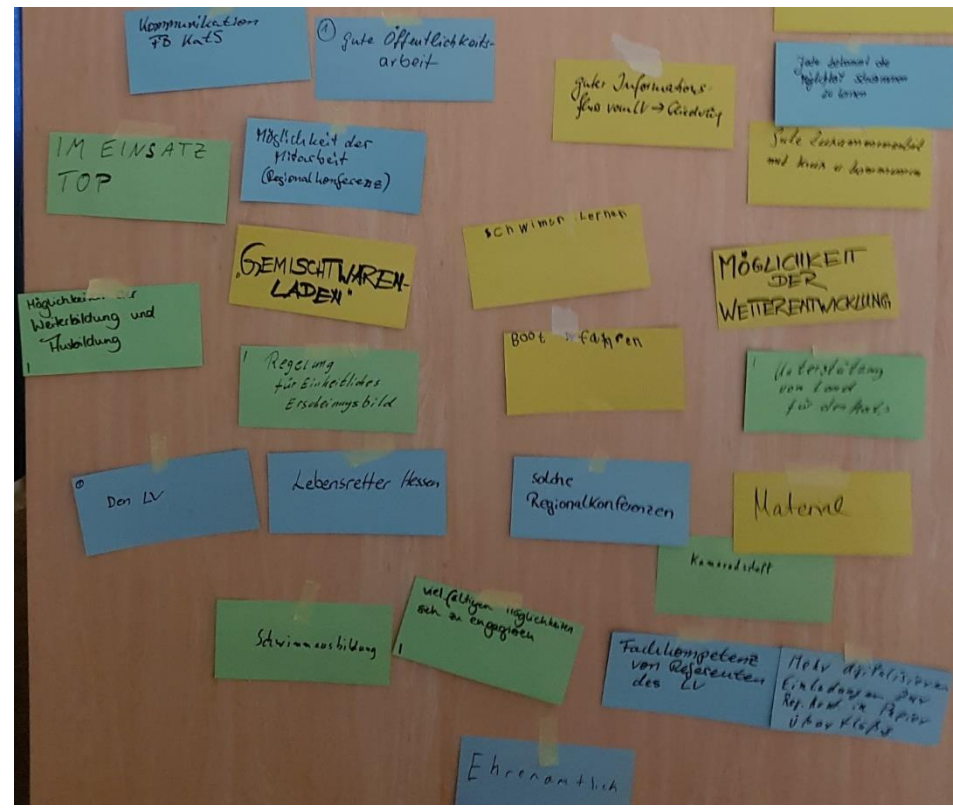 Kommunikation
FB KatS
① gute Öffentlichkeits-
arbeit
guter Informations-
fluss vom LV → Gliederung
Jede
die
Möglichkeit schwimmen
zu lernen
Gute Zusammenarbeit
mit Kreis u.
IM EINSATZ
TOP
Möglichkeit der
Mitarbeit
(Regionalkonferenz)
schwimen Lernen
"GEMISCHTWAREN-
LADEN"
MÖGLICHKEIT
DER
WEITERENTWICKLUNG
Möglichkeiten der
Weiterbildung und
Ausbildung
Boot fahren
Regelung
für Einheitliches
Erscheinungsbild
Unterstützung
vom Land
für den KatS
Den LV
Lebensretter Hessen
solche
Regionalkonferenzen
Material
Kameradschaft
Schwimmausbildung
vielfältigen Möglichkeiten
sich zu engagieren
Fachkompetenz
von Referenten
des LV
Mehr digitalisieren
Einladungen zur
Reg. Konf in Papier
überflüssig
Ehrenamtlich